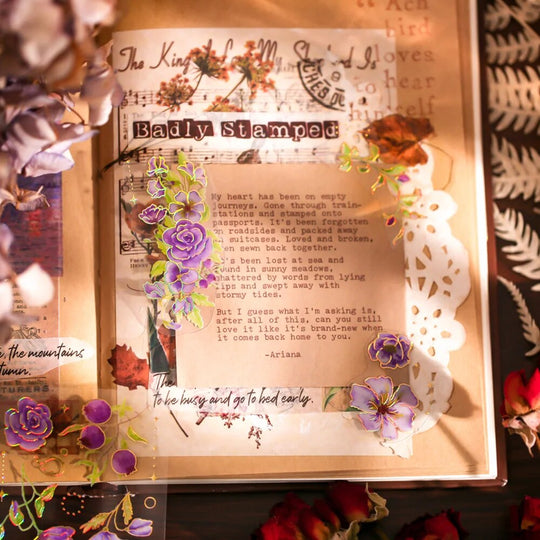 The King of Love My Shepherd Is
Each
bird
loves
to hear
himself
Badly Stamped
My heart has been on empty
journeys. Gone through train-
stations and stamped onto
passports. It's been forgotten
on roadsides and packed away
in suitcases. Loved and broken,
then sewn back together.
It's been lost at sea and
found in sunny meadows,
shattered by words from lying
lips and swept away with
stormy tides.
But I guess what I'm asking is,
after all of this, can you still
love it like it's brand-new when
it comes back home to you.
-Ariana
the mountains
The
to be busy and go to bed early.